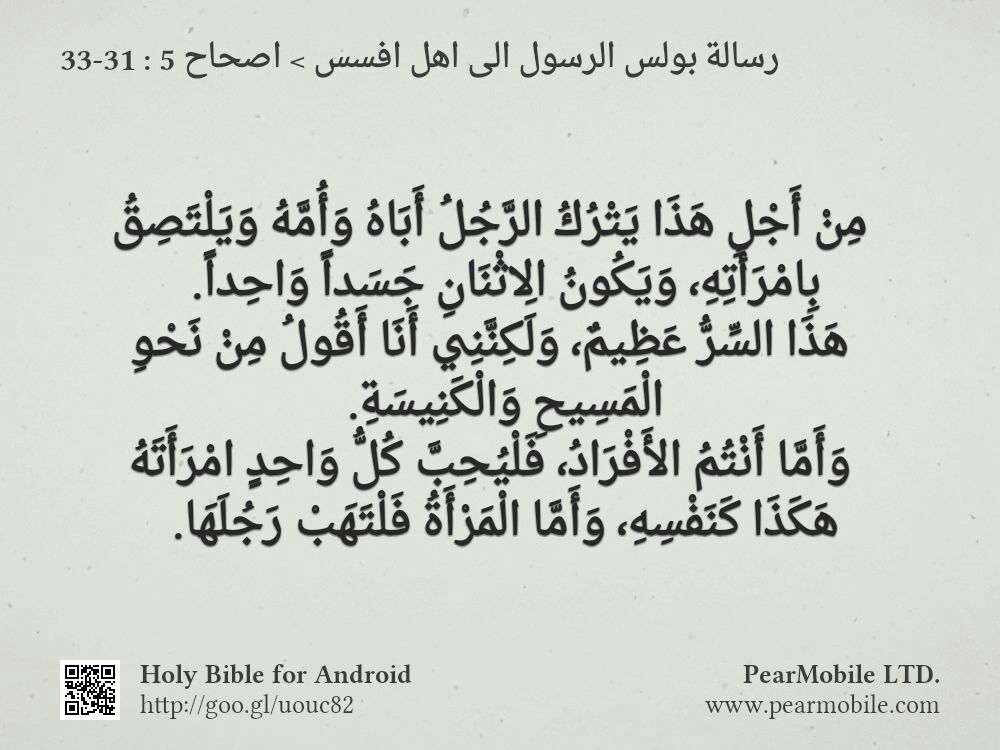 رسالة بولس الرسول الى اهل افسس > اصحاح 5 : 31-33
مِنْ أَجْلِ هَذَا يَتْرُكُ الرَّجُلُ أَبَاهُ وَأُمَّهُ وَيَلْتَصِقُ
بِامْرَأَتِهِ، وَيَكُونُ الِاثْنَانِ جَسَداً وَاحِداً.
هَذَا السِّرُّ عَظِيمٌ، وَلَكِنَّنِي أَنَا أَقُولُ مِنْ نَحْوِ
الْمَسِيحِ وَالْكَنِيسَةِ.
وَأَمَّا أَنْتُمُ الأَفْرَادُ، فَلْيُحِبَّ كُلُّ وَاحِدٍ امْرَأَتَهُ
هَكَذَا كَنَفْسِهِ، وَأَمَّا الْمَرْأَةُ فَلْتَهَبْ رَجُلَهَا.
Holy Bible for Android
http://goo.gl/uouc82
PearMobile LTD.
www.pearmobile.com